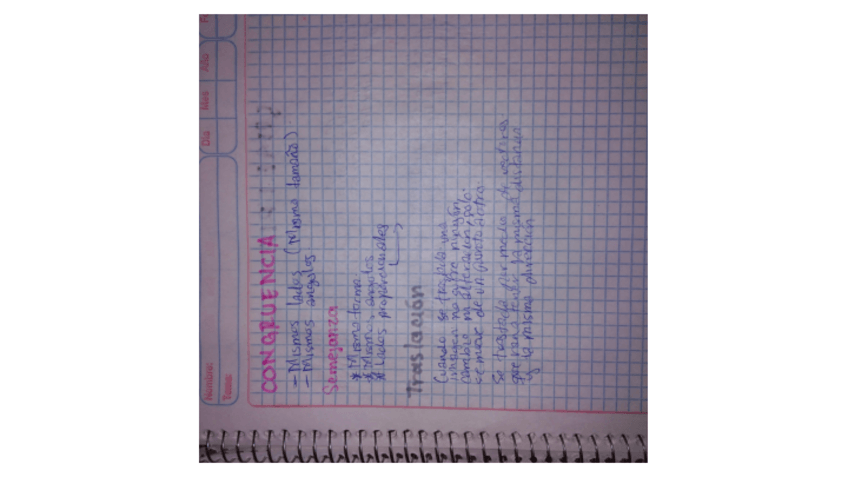 Nombre:
Tema:
Día Mes Año
CONGRUENCIA
- Mismos lados (Mismo tamaño)
- Mismos angulos
Semejanza
* Misma forma
* Mismos angulos
* Lados proporcionales
Traslación
Cuando se traslada una
imagen no sufre ningún
cambio ni alteración, solo
se mueve de un punto a otro.
Se traslada por medio de vectores
que van a tener la misma distancia
y la misma dirección